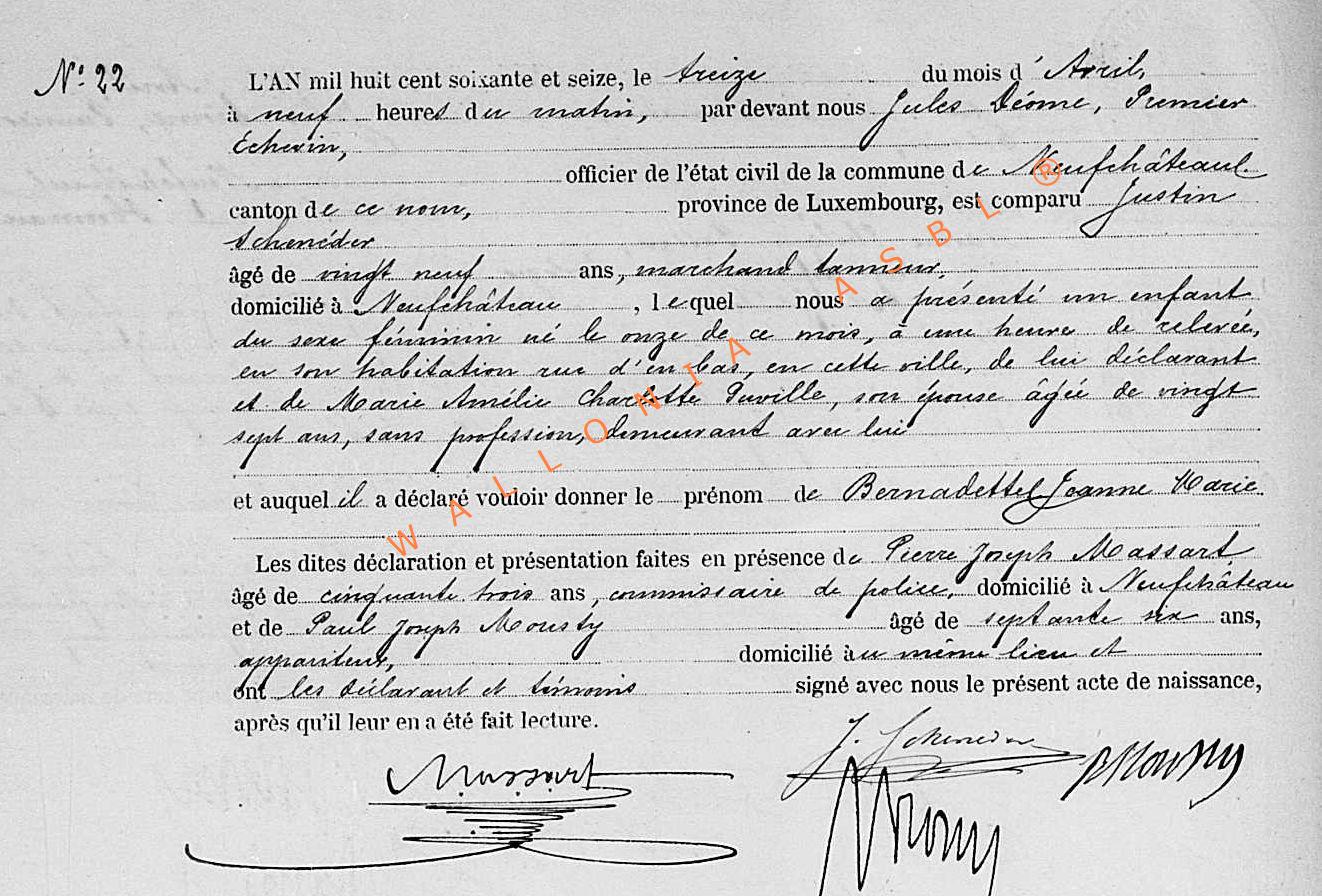 N° 22
L'AN mil huit cent soixante et seize, le treize du mois d'Avril,
à neuf heures du matin, par devant nous Jules Déome, Premier
Échevin,
officier de l'état civil de la commune de Neufchâteau
canton de ce nom, province de Luxembourg, est comparu Justin
Schenéder
âgé de vingt neuf ans, marchand tanneur,
domicilié à Neufchâteau, lequel nous a présenté un enfant
du sexe féminin né le onze de ce mois, à une heure de relevée,
en son habitation rue d'en bas, en cette ville, de lui déclarant
et de Marie Amélie Charlotte Puville, son épouse âgée de vingt
sept ans, sans profession, demeurant avec lui
et auquel il a déclaré vouloir donner le prénom de Bernadette Jeanne Marie
Les dites déclaration et présentation faites en présence de Pierre Joseph Massart
âgé de cinquante trois ans, commissaire de police, domicilié à Neufchâteau
et de Paul Joseph Mousty âgé de septante six ans,
appariteur, domicilié au même lieu et
ont les déclarant et témoins signé avec nous le présent acte de naissance,
après qu'il leur en a été fait lecture.
J. Scheneder
Massart
PMousty
WALLONIA ASBL ®